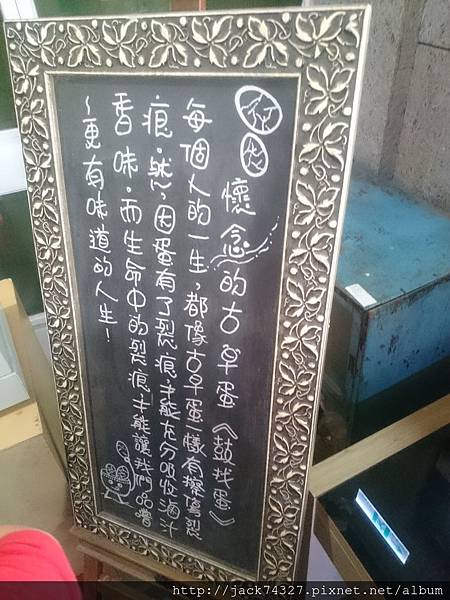 懷念的古早蛋《鼓找蛋》
每個人的一生,都像古早蛋一樣有擦傷裂
痕.然,因蛋有了裂痕,才能充分吸收滷汁
香味.而生命中的裂痕才能讓我們品嚐
~更有味道的人生!
http://jack74327.pixnet.net/album